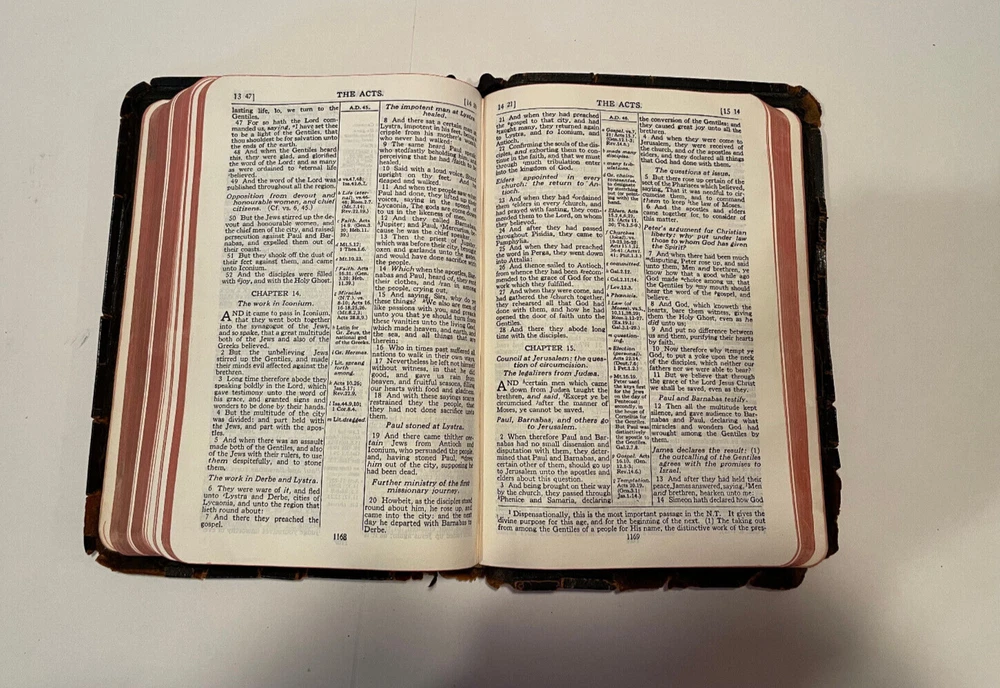 13 47]
THE ACTS.
[14 8
lasting life, lo, we turn to the
Gentiles.
47 For so hath the Lord com-
manded us, saying, I have set thee
to be a light of the Gentiles, that
thou shouldest be for salvation unto
the ends of the earth.
48 And when the Gentiles heard
this, they were glad, and glorified
the word of the Lord: and as many
as were ordained to eternal life
believed.
49 And the word of the Lord was
published throughout all the region.
Opposition from devout and
honourable women, and chief
citizens. (Cf. vs. 6, 45.)
50 But the Jews stirred up the de-
vout and honourable women, and
the chief men of the city, and raised
persecution against Paul and Bar-
nabas, and expelled them out of
their coasts.
51 But they shook off the dust of
their feet against them, and came
unto Iconium.
52 And the disciples were filled
with joy, and with the Holy Ghost.
CHAPTER 14.
The work in Iconium.
AND it came to pass in Iconium,
that they went both together
into the synagogue of the Jews,
and so spake, that a great multitude
both of the Jews and also of the
Greeks believed.
2 But the unbelieving Jews
stirred up the Gentiles, and made
their minds evil affected against the
brethren.
3 Long time therefore abode they
speaking boldly in the Lord, which
gave testimony unto the word of
his grace, and granted signs and
wonders to be done by their hands.
4 But the multitude of the city
was divided: and part held with
the Jews, and part with the apos-
tles.
5 And when there was an assault
made both of the Gentiles, and also
of the Jews with their rulers, to use
them despitefully, and to stone
them,
The work in Derbe and Lystra.
6 They were ware of it, and fled
unto Lystra and Derbe, cities of
Lycaonia, and unto the region that
lieth round about:
7 And there they preached the
gospel.
A.D. 45.
The impotent man at Lystra
healed.
8 And there sat a certain man at
Lystra, impotent in his feet, being a
cripple from his mother's womb,
who never had walked:
9 The same heard Paul speak:
who stedfastly beholding him, and
perceiving that he had faith to be
healed,
10 Said with a loud voice, Stand
upright on thy feet. And he
leaped and walked.
11 And when the people saw what
Paul had done, they lifted up their
voices, saying in the speech of
Lycaonia, The gods are come down
to us in the likeness of men.
12 And they called Barnabas,
Jupiter; and Paul, Mercurius, be-
cause he was the chief speaker.
13 Then the priest of Jupiter,
which was before their city, brought
oxen and garlands unto the gates,
and would have done sacrifice with
the people.
14 Which when the apostles, Bar-
nabas and Paul, heard of, they rent
their clothes, and ran in among
the people, crying out,
15 And saying, Sirs, why do ye
these things? We also are men of
like passions with you, and preach
unto you that ye should turn from
these vanities unto the living God,
which made heaven, and earth, and
the sea, and all things that are
therein:
16 Who in times past suffered all
nations to walk in their own ways.
17 Nevertheless he left not himself
without witness, in that he did
good, and gave us rain from
heaven, and fruitful seasons, filling
our hearts with food and gladness.
18 And with these sayings scarce
restrained they the people, that
they had not done sacrifice unto
them.
Paul stoned at Lystra.
19 And there came thither cer-
tain Jews from Antioch and
Iconium, who persuaded the people,
and, having stoned Paul, drew
him out of the city, supposing he
had been dead.
Further ministry of the first
missionary journey.
20 Howbeit, as the disciples stood
round about him, he rose up, and
came into the city: and the next
day he departed with Barnabas to
Derbe.
1168
14 21]
THE ACTS.
[15 14
21 And when they had preached
the gospel to that city, and had
taught many, they returned again
to Lystra, and to Iconium, and
Antioch,
22 Confirming the souls of the dis-
ciples, and exhorting them to con-
tinue in the faith, and that we must
through much tribulation enter
into the kingdom of God.
Elders appointed in every
church; the return to An-
tioch.
23 And when they had ordained
them elders in every church, and
had prayed with fasting, they com-
mended them to the Lord, on whom
they believed.
24 And after they had passed
throughout Pisidia, they came to
Pamphylia.
25 And when they had preached
the word in Perga, they went down
into Attalia:
26 And thence sailed to Antioch,
from whence they had been recom-
mended to the grace of God for the
work which they fulfilled.
27 And when they were come, and
had gathered the church together,
they rehearsed all that God had
done with them, and how he had
opened the door of faith unto the
Gentiles.
28 And there they abode long
time with the disciples.
CHAPTER 15.
Council at Jerusalem: the ques-
tion of circumcision.
The legalizers from Judæa.
AND certain men which came
down from Judæa taught the
brethren, and said, Except ye be
circumcised after the manner of
Moses, ye cannot be saved.
Paul, Barnabas, and others go
to Jerusalem.
2 When therefore Paul and Bar-
nabas had no small dissension and
disputation with them, they deter-
mined that Paul and Barnabas, and
certain other of them, should go up
to Jerusalem unto the apostles and
elders about this question.
3 And being brought on their way
by the church, they passed through
Phenice and Samaria, declaring
A.D. 46.
the conversion of the Gentiles: and
they caused great joy unto all the
brethren.
4 And when they were come to
Jerusalem, they were received of
the church, and of the apostles and
elders, and they declared all things
that God had done with them.
The questions at issue.
5 But there rose up certain of the
sect of the Pharisees which believed,
saying, That it was needful to cir-
cumcise them, and to command
them to keep the law of Moses.
6 And the apostles and elders
came together for to consider of
this matter.
Peter's argument for Christian
liberty: why put under law
those to whom God has given
the Spirit?
7 And when there had been much
disputing, Peter rose up, and said
unto them, Men and brethren, ye
know how that a good while ago
God made choice among us, that
the Gentiles by my mouth should
hear the word of the gospel, and
believe.
8 And God, which knoweth the
hearts, bare them witness, giving
them the Holy Ghost, even as he
did unto us;
9 And put no difference between
us and them, purifying their hearts
by faith.
10 Now therefore why tempt ye
God, to put a yoke upon the neck
of the disciples, which neither our
fathers nor we were able to bear?
11 But we believe that through
the grace of the Lord Jesus Christ
we shall be saved, even as they.
Paul and Barnabas testify.
12 Then all the multitude kept
silence, and gave audience to Bar-
nabas and Paul, declaring what
miracles and wonders God had
wrought among the Gentiles by
them.
James declares the result: (1)
the outcalling of the Gentiles
agrees with the promises to
Israel.
13 And after they had held their
peace, James answered, saying, Men
and brethren, hearken unto me:
14 Simeon hath declared how God
1 Dispensationally, this is the most important passage in the N.T. It gives the
divine purpose for this age, and for the beginning of the next. (1) The taking out
from among the Gentiles of a people for His name, the distinctive work of the pres-
1169